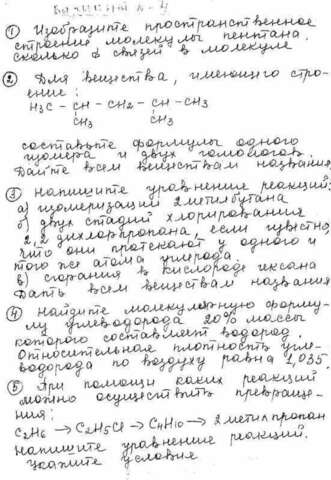 Вариант № 4
① Изобразите пространственное
строение молекулы пентана.
сколько δ связей в молекуле
② Для вещества, имеющего стро-
ение:
H₃C – CH – CH₂ – CH – CH₃
CH₃ CH₃
составьте формулы одного
изомера и двух гомологов.
Дайте всем веществам названия
③ напишите уравнение реакций:
а) изомеризации 2 метилбутана
б) двух стадий хлорирования
2,2 дихлорпропана, если известно,
что они протекают у одного и
того же атома углерода.
в) сгорания в кислороде гексана
Дать всем веществам названия
④ найдите молекулярную форму-
лу углеводорода 20% массы
которого составляет водород.
Относительная плотность угле-
водорода по воздуху равна 1,035.
⑤ При помощи каких реакций
можно осуществить превраще-
ния:
C₂H₆ → C₂H₅Cl → C₄H₁₀ → 2 метил пропан
напишите уравнение реакций.
укажите условия